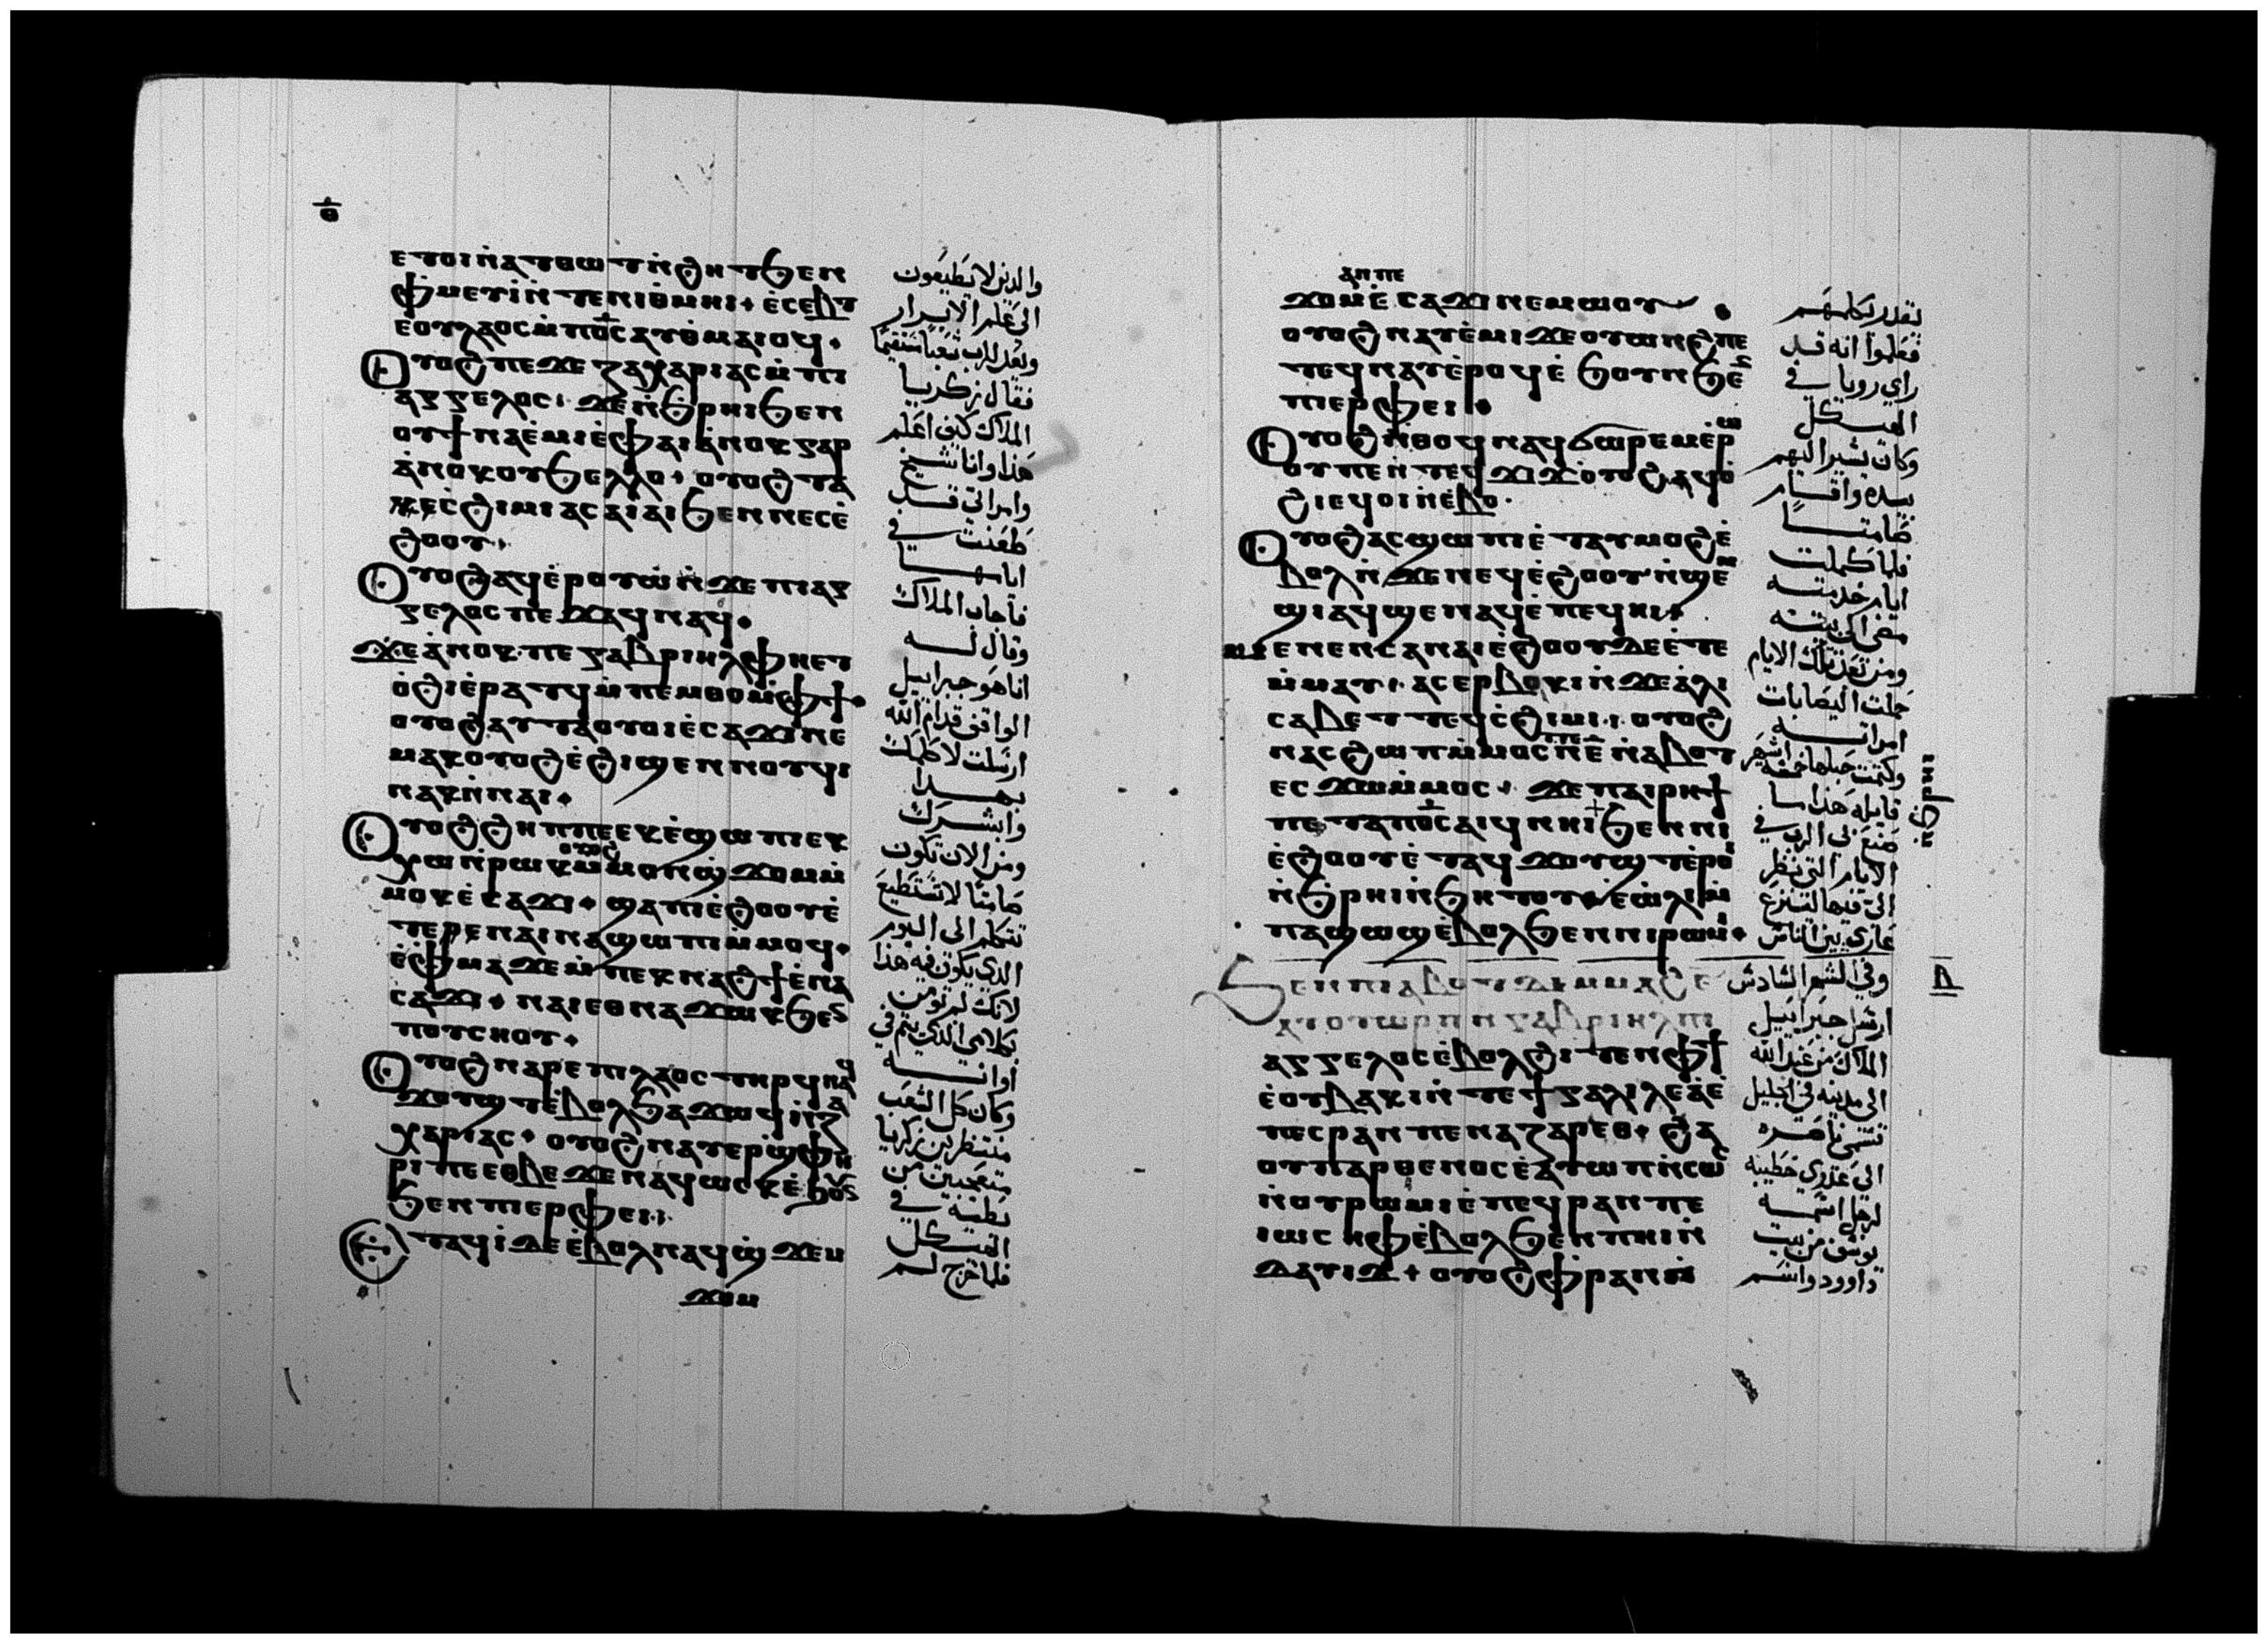 ⲑ
ⲉⲧⲟⲓⲛ̀ⲁⲧⲑⲱⲧⲛ̀ϩⲏⲧϧⲉⲛ
ⲫⲙⲉⲩⲓ̀ⲛ̀ⲧⲉⲛⲓⲑⲙⲏⲓ ⲉ̀ⲥⲉⲃⲧ
ⲉⲟⲩⲗⲁⲟⲥⲙ̀ⲡⲟ̅ⲥ̅ⲁⲩⲑⲙⲁⲓⲟϥ
ⲟⲩⲟϩⲡⲉϫⲉⲍⲁⲭⲁⲣⲓⲁⲥⲙ̀ⲡⲓ
ⲁⲅⲅⲉⲗⲟⲥ ϫⲉⲛ̀ϧⲣⲏⲓϧⲉⲛ
ⲟⲩϯⲛⲁⲉ̀ⲙⲓⲉ̀ⲫⲁⲓⲁ̀ⲛⲟⲕⲅⲁⲣ
ⲁ̀ⲛⲟⲕⲟⲩϧⲉⲗⲗⲟ ⲟⲩⲟϩⲧⲁ
ⲕⲉⲥ̀ϩⲓⲙⲓⲁⲥⲁⲓⲁⲓϧⲉⲛⲛⲉⲥⲉ̀
ϩⲟⲟⲩ
ⲟⲩⲟϩⲁϥⲉ̀ⲣⲟⲩⲱ̀ⲛ̀ϫⲉⲡⲓⲁⲅ
ⲅⲉⲗⲟⲥⲡⲉϫⲁϥⲛⲁϥ
ϫⲉⲁ̀ⲛⲟⲕⲡⲉⲅⲁⲃⲣⲓⲏⲗⲫⲏⲉⲧ
ⲟ̀ϩⲓⲉ̀ⲣⲁⲧϥⲙ̀ⲡⲉⲙⲑⲟⲙ̀ⲫϯ
ⲟⲩⲟϩⲁⲩⲧⲁⲟⲩⲟⲓⲉ̀ⲥⲁϫⲓⲛⲉ
ⲙⲁⲕⲟⲩⲟϩⲉ̀ϩⲓϣⲉⲛⲛⲟⲩϥⲓ
ⲛⲁⲕⲛ̀ⲛⲁⲓ
ⲟⲩⲟϩϩⲏⲡⲡⲉⲉⲕⲉ̀ϣⲱⲡⲓⲉⲕ
ⲭⲱⲛ̀ⲣⲱⲕⲟⲩⲟϩⲙ̀ⲙⲟⲛϣϫⲟⲙⲙ̀
ⲙⲟⲕⲉ̀ⲥⲁϫⲓ ϣⲁⲡⲓⲉ̀ϩⲟⲟⲩⲉ̀
ⲧⲉⲣⲉⲛⲁⲓⲛⲁϣⲱⲡⲓⲙ̀ⲙⲟϥ
ⲉ̀ⲫⲙⲁϫⲉⲙ̀ⲡⲉⲕⲛⲁϩϯⲉ̀ⲛⲁ
ⲥⲁϫⲓ ⲛⲁⲓⲉⲑⲛⲁϫⲱⲕϧⲉ
ⲡⲟⲩⲥⲏⲟⲩ
ⲟⲩⲟϩⲛⲁⲣⲉⲡⲓⲗⲁⲟⲥⲧⲏⲣϥⲛⲁ
ϫⲟⲩϣⲧⲉ̀ⲃⲟⲗϧⲁϫⲱϥⲛ̀ⲍⲁ
ⲭⲁⲣⲓⲁⲥ ⲟⲩⲟϩⲛⲁⲩⲉⲣϣ̀ⲫⲏ
ⲣⲓⲡⲉⲉⲑⲃⲉϫⲉⲛⲁϥⲱⲥⲕⲉ̀ϧⲟⲩ
ϧⲉⲛⲡⲓⲉⲣⲫⲉⲓ
ⲉⲧⲁϥⲓ̀ⲇⲉⲉ̀ⲃⲟⲗⲛⲁϥϣ̀ϫⲉⲙ
ϫⲟⲙ
والدين لا يطيعون
الى علم الابرار
ويعد للرب شعبا مستقيما
فقال زكريا
الملاك كيف اعلم
هذا وانا شيخ
وامراتى قد
طعنت في
ايامها
فاجاب الملاك
وقال له
انا هو جبراييل
الواقف قدام الله
ارسلت لاكلمك
بهدا
وابشرك
ومن الان تكون
صامتا لا تستطيع
تتكلم الى اليوم
الدي يكون فيه هذا
لانك لم تومن
بكلامى الذي يتم في
اوانه
وكان كل الشعب
منتظرين زكريا
متعجبين من
بطيه في
الهيكل
فلما خرج لم
ⲁⲛⲡⲉ
ϫⲟⲙⲉ̀ⲥⲁϫⲓⲛⲉⲙⲱⲟⲩ
ⲟⲩⲟϩⲛⲁⲩⲉ̀ⲙⲓϫⲉⲟⲩⲱⲛϩⲡⲉ
ⲧⲉϥⲛⲁⲩⲉ̀ⲣⲟϥⲉ̀ϧⲟⲩⲛϧⲉ
ⲡⲓⲉⲣⲫⲉⲓ
ⲟⲩⲟϩⲛ̀ⲑⲟϥⲛⲁϥϭⲱⲣⲉⲙⲉ̀ⲣⲱ
ⲟⲩⲡⲉⲛⲧⲉϥϫⲓϫⲟⲩⲟϩⲁϥⲟ̀
ϩⲓⲉϥⲟⲓⲛ̀ⲉⲃⲟ
ⲟⲩⲟϩⲁⲥϣⲱⲡⲓⲉ̀ⲧⲁⲩⲙⲟϩⲉ̀
ⲃⲟⲗⲛ̀ϫⲉⲛⲉϥⲉ̀ϩⲟⲟⲩⲛ̀ϣⲉⲙ
ϣⲓⲁϥϣⲉⲛⲁϥⲉ̀ⲡⲉϥⲏⲓ
ⲙⲉⲛⲉⲛⲥⲁⲛⲁⲓⲉ̀ϩⲟⲟⲩⲇⲉⲉ̀ⲧⲉ
ⲙ̀ⲙⲁⲩ ⲁⲥⲉⲣⲃⲟⲕⲓⲛ̀ϫⲉⲁ̀ⲗⲓ
ⲥⲁⲃⲉⲧⲧⲉϥⲥ̀ϩⲓⲙⲓ ⲟⲩⲟϩ
ⲛⲁⲥϩⲱⲡⲙ̀ⲙⲟⲥⲡⲉⲛ̀ⲉ̅ⲛ̀ⲁⲃⲟⲧ
ⲉⲥϫⲱⲙ̀ⲙⲟⲥ ϫⲉⲡⲁⲓⲣⲏϯ
ⲡⲉⲧⲁⲡⲟ̅ⲥ̅ⲁⲓϥⲛⲏⲓϧⲉⲛⲛⲓ
ⲉ̀ϩⲟⲟⲩⲉ̀ⲧⲁϥϫⲟⲩϣⲧⲉ̀ⲣⲟⲓ
ⲛ̀ϧⲣⲏⲓⲛ̀ϧⲏⲧⲟⲩⲉ̀ⲱ̀ⲗⲓⲙ̀
ⲡⲁϣⲱϣⲉ̀ⲃⲟⲗϧⲉⲛⲛⲓⲣⲱⲙⲓ
ϧⲉⲛⲡⲓⲁⲃⲟⲧⲇⲉⲙⲙⲁϩⲋ̅
ⲁⲩⲟⲩⲱⲣⲡⲛ̀ⲅⲁⲃⲣⲓⲏⲗⲡⲓ
ⲁⲅⲅⲉⲗⲟⲥⲉ̀ⲃⲟⲗϩⲓⲧⲉⲛⲫϯ
ⲉ̀ⲟⲩⲃⲁⲕⲓⲛ̀ⲧⲉϯⲅⲁⲗⲓⲗⲉⲁ̀ⲉ̀
ⲡⲉⲥⲣⲁⲛⲡⲉⲛⲁⲍⲁⲣⲉⲑ ϩⲁ
ⲟⲩⲡⲁⲣⲑⲉⲛⲟⲥⲉ̀ⲁⲩⲱⲡⲛ̀ⲥⲱⲥ
ⲛ̀ⲟⲩⲣⲱⲙⲓⲉ̀ⲡⲉϥⲣⲁⲛⲡⲉ
ⲓⲱⲥⲏⲫⲉ̀ⲃⲟⲗϧⲉⲛⲡⲏⲓⲛ̀
ⲇⲁⲩⲓⲇ ⲟⲩⲟϩⲫⲣⲁⲛⲛ̀
يقدر يكلمهم
فعلموا انه قد
راي رويا في
الهيكل
وكان يشير اليهم
بيده واقام
صامتا
فلما كملت
ايام خدمته
مضى الى بيته
ومن بعد تلك الايام
حبلت اليصابات
امراته
وكتمت حبلها خمسه اشهر
قايله هذا ما
صنع بى الرب في
الايام التى نظر
الى فيها لينزع
عاري بين الناس
وفى الشهر السادس
ارسل جبراييل
الملاك من عند الله
الى مدينه في الجليل
تسمى ناصره
الى عذري خطيبه
لرجل اسمه
يوسف من بيت
داوود واسم